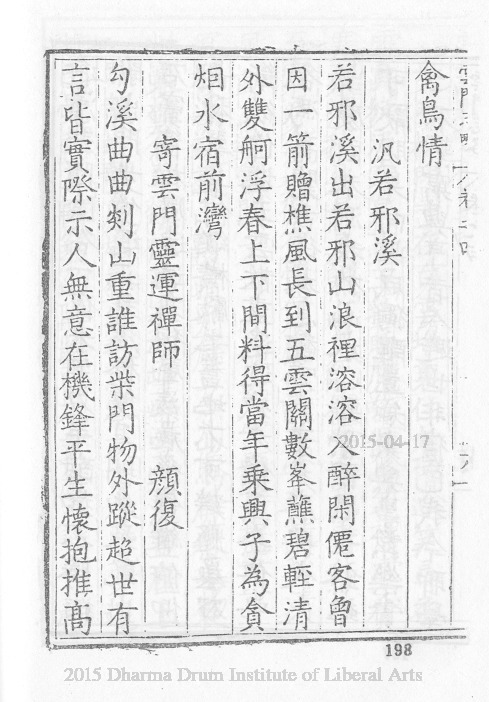 禽鳥情
汎若邪溪
若邪溪出若邪山浪裡溶溶入醉閑僊客曾
因一箭贈樵風長到五雲關數峯蘸碧輕清
外雙舸浮春上下間料得當年乗興子為貪
烟水宿前灣
寄雲門靈運禪師 顔復
勾溪曲曲剡山重誰訪柴門物外蹤超世有
言皆實際示人無意在機鋒平生懷抱推髙
2015-04-17
198
2015 Dharma Drum Institute of Liberal Arts